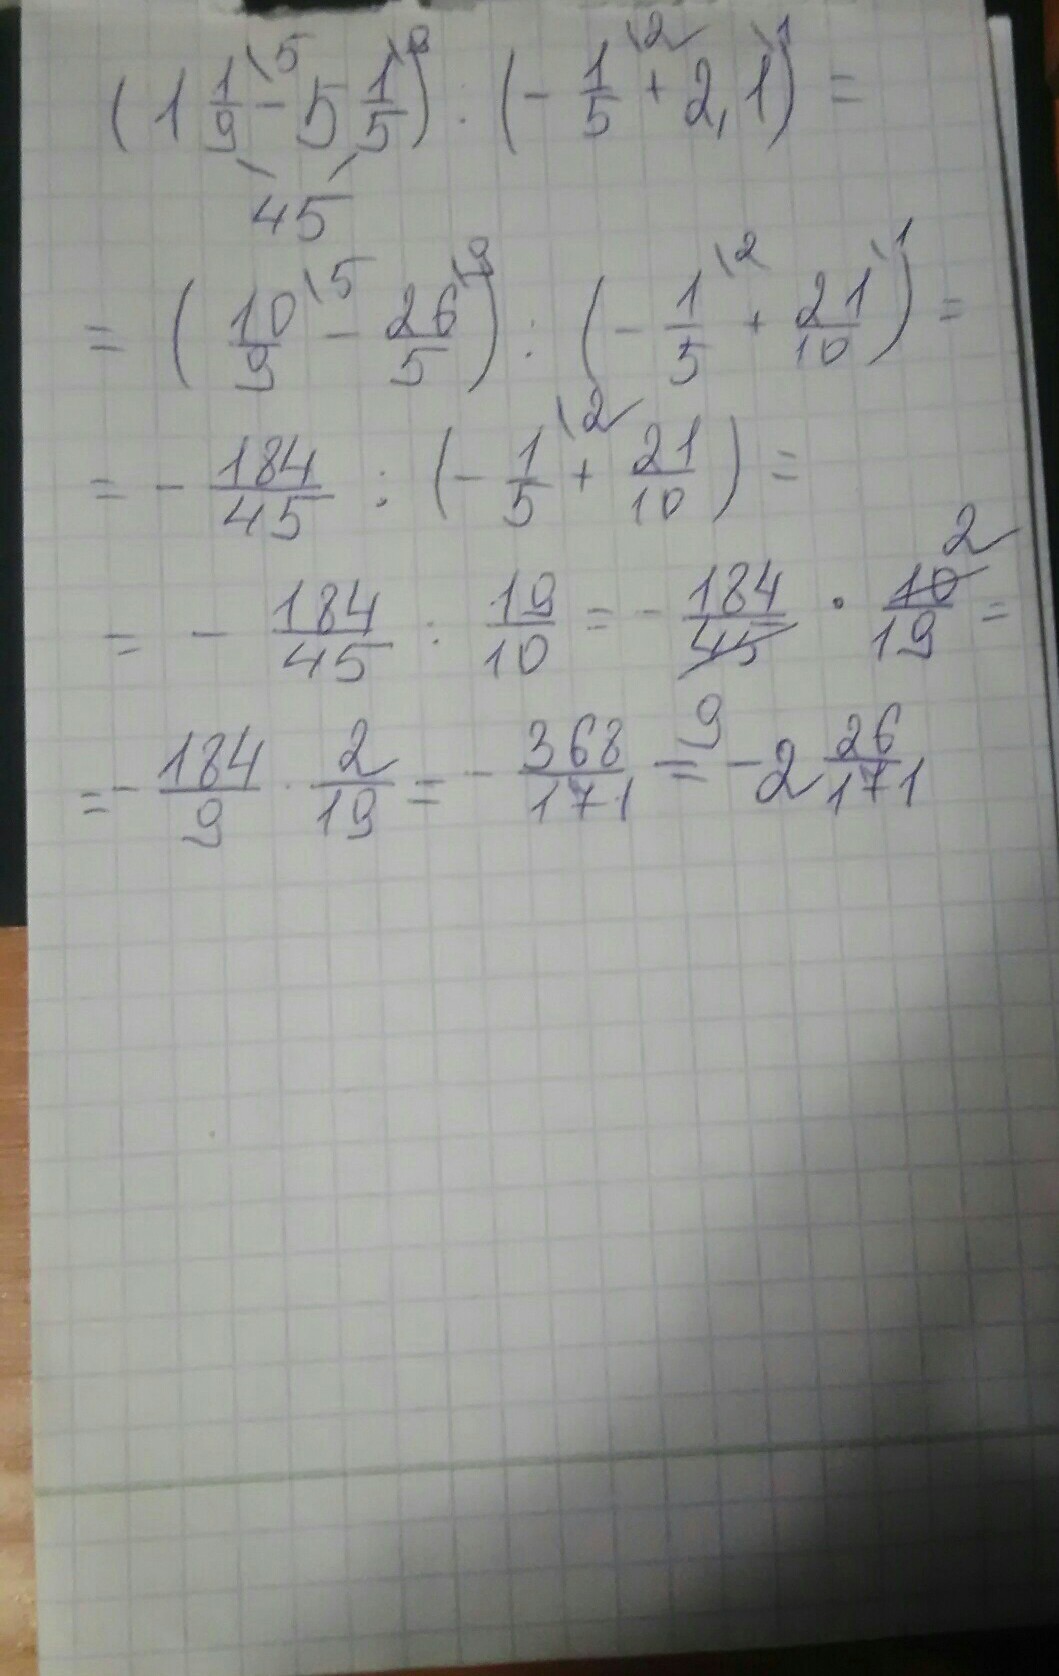 (1 1/9\5 - 5 1/5\9) : (- 1/5\2 + 2,1\1) =
45
= (10/9\5 - 26/5\9) : (- 1/5\2 + 21/10\1) =
= - 184/45 : (- 1/5\2 + 21/10) =
2
= - 184/45 : 19/10 = - 184/45 · 10/19 =
9
= - 184/9 · 2/19 = - 368/171 = - 2 26/171